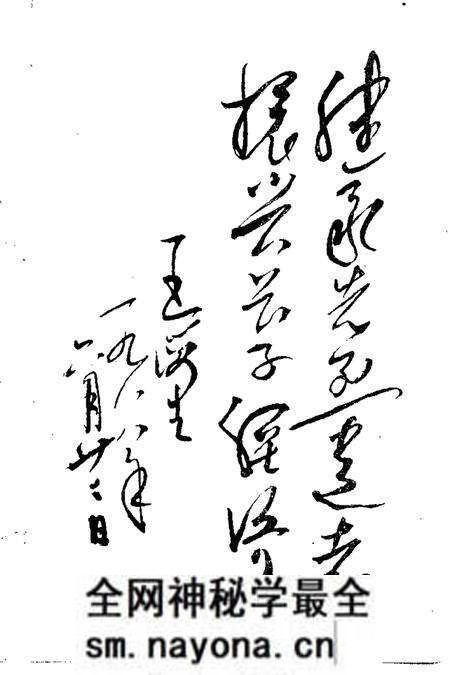 继承先遗志
振兴子
王生
一九八八年
六月廿二日
全网神秘学最全
sm.nayona.cn